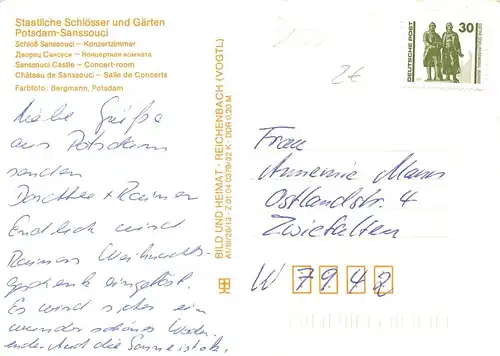 Staatliche Schlösser und Gärten
Potsdam-Sanssouci
Schloß Sanssouci – Konzertzimmer
Дворец Сансуси – Концертная комната
Sanssouci Castle – Concert-room
Château de Sanssouci – Salle de Concerts
Farbfoto: Bergmann, Potsdam
Liebe Grüße
aus Potsdam
senden
Dorothee + Rainer
Endlich wird
Rainers Weihnachts-
geschenk eingelöst.
Es wird sicher ein
wunderschönes Wochen-
ende. Auch die Sonne ist da.
BILD UND HEIMAT · REICHENBACH (VOGTL)
A1/III/26/13 · Z 01 04 0379/32 K · DDR 0,20 M
2€
DEUTSCHE POST
30
Frau
Annemie Mann
Ostlandstr. 4
Zwiefalten
W 7942